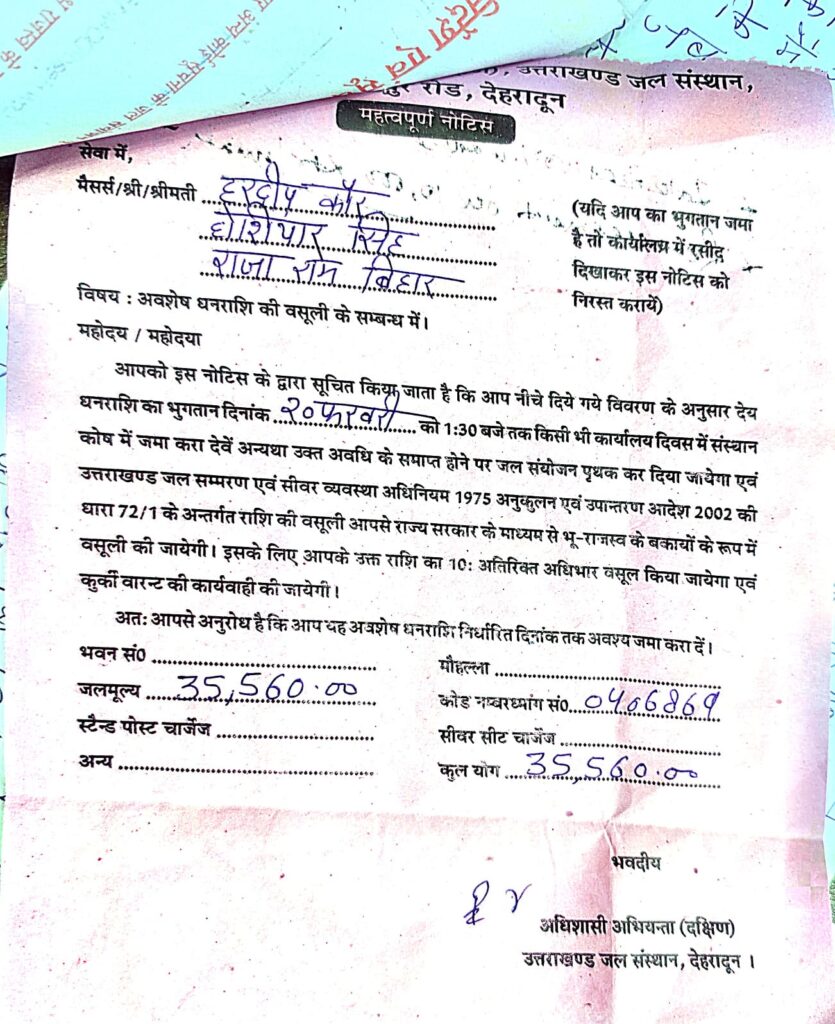 निर्देश एवं
अन्य कोई सूचना के जल
उत्तराखण्ड जल संस्थान,
रोड, देहरादून
महत्वपूर्ण नोटिस
सेवा में,
मैसर्स/श्री/श्रीमती हरदीप कौर
होशियार सिंह
राजा राम बिहार
(यदि आप का भुगतान जमा
है तो कार्यालय में रसीद
दिखाकर इस नोटिस को
निरस्त करायें)
विषय : अवशेष धनराशि की वसूली के सम्बन्ध में।
महोदय / महोदया
आपको इस नोटिस के द्वारा सूचित किया जाता है कि आप नीचे दिये गये विवरण के अनुसार देय
धनराशि का भुगतान दिनांक २० फरवरी को 1:30 बजे तक किसी भी कार्यालय दिवस में संस्थान
कोष में जमा करा देवें अन्यथा उक्त अवधि के समाप्त होने पर जल संयोजन पृथक कर दिया जायेगा एवं
उत्तराखण्ड जल सम्मरण एवं सीवर व्यवस्था अधिनियम 1975 अनुकुलन एवं उपान्तरण आदेश 2002 की
धारा 72/1 के अन्तर्गत राशि की वसूली आपसे राज्य सरकार के माध्यम से भू-राजस्व के बकायों के रूप में
वसूली की जायेगी। इसके लिए आपके उक्त राशि का 10: अतिरिक्त अधिभार वसूल किया जायेगा एवं
कुर्की वारन्ट की कार्यवाही की जायेगी।
अतः आपसे अनुरोध है कि आप यह अवशेष धनराशि निर्धारित दिनांक तक अवश्य जमा करा दें।
भवन सं0
मौहल्ला
जलमूल्य 35,560.00
कोड नम्बर सं0 0406869
स्टैन्ड पोस्ट चार्जेज
सीवर सीट चार्जेज
अन्य
कुल योग 35,560.00
भवदीय
अधिशासी अभियन्ता (दक्षिण)
उत्तराखण्ड जल संस्थान, देहरादून ।